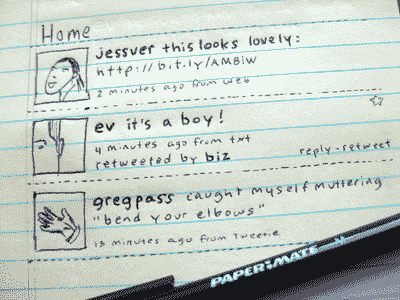 Home
jessver this looks lovely:
http://bit.ly/AMBiW
2 minutes ago from web
ev it's a boy!
4 minutes ago from txt
retweeted by biz
reply · retweet
gregpass caught myself muttering
"bend your elbows"
13 minutes ago from Tweetie
PAPER:MATE